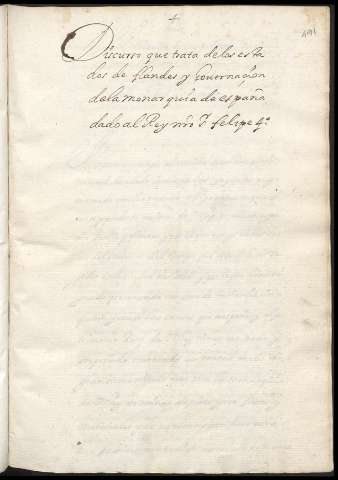 4
Discurso que trata de los esta
dos de flandes y Gouernaçion
de la monarquia de españa
dado al Rey nro S felipe 4º